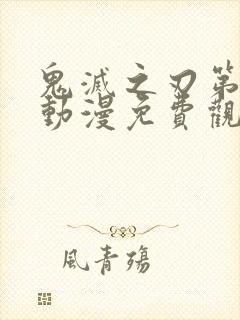 鬼滅之刃第
動漫免費觀
風青殤